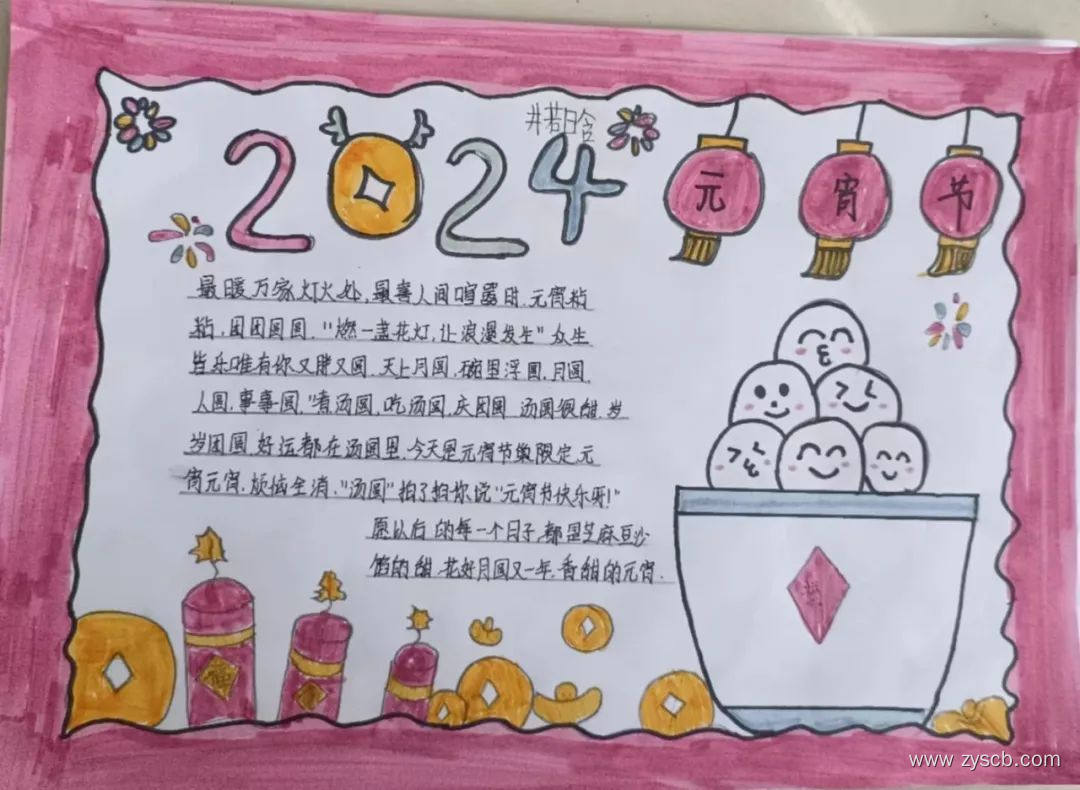 井若晗
2024
元宵节
最暖万家灯火处,最喜人间喧嚣时.元宵粘
粘,团团圆圆."燃一盏花灯,让浪漫发生"众生
皆乐唯有你又胖又圆.天上月圆,碗里浮圆,月圆,
人圆,事事圆,"煮汤圆,吃汤圆,庆团圆 汤圆很甜,岁
岁团圆,好运都在汤圆里.今天是元宵节 限定,元
宵元宵,烦恼全消,"汤圆"拍了拍你说"元宵节快乐呀!"
愿以后的每一个日子,都是芝麻豆沙
馅的甜.花好月圆又一年,香甜的元宵.
www.zyscb.com